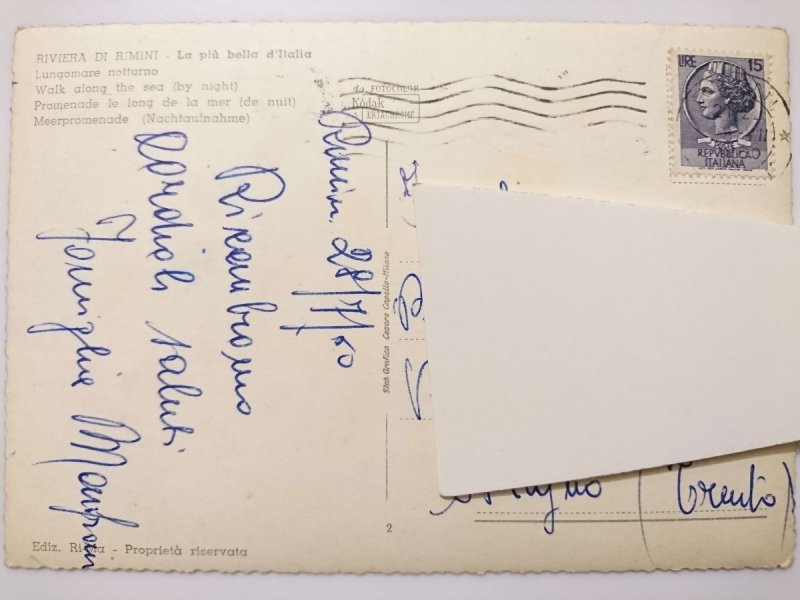 RIVIERA DI RIMINI - La più bella d'Italia
Lungomare notturno
Walk along the sea (by night)
Promenade le long de la mer (de nuit)
Meerpromenade (Nachtaufnahme)
da FOTOCOLOR
Kodak
EKTACHROME
LIRE 15
REPVBBLICA
ITALIANA
Rimini 28/7/60
Ricambiamo
cordiali saluti
Famiglia
Stab. Grafico Cesare Capello-Milano
(Trento)
2
Ediz. - Proprietà riservata